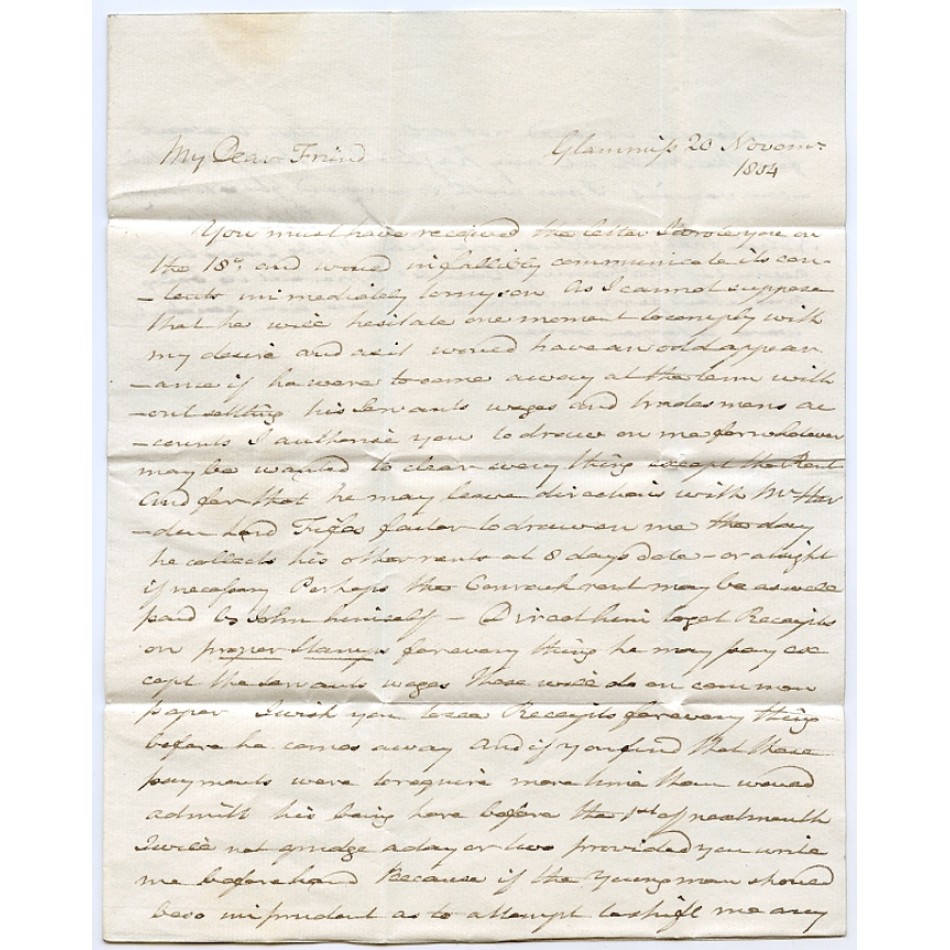 My Dear Friend
Glammiss 20 Novem.r
1804
You must have received the letter I wrote you on
the 18.o and would infallibly communicate its con-
-tents immediately to my son As I cannot suppose
that he will hesitate one moment to comply with
my desire and as it would have an odd appear
-ance if he were to come away at the term with
-out settling his Servants wages and tradesmens ac
-counts I authorise you to draw on me for whatever
may be wanted to clear every thing except the Rent
And for that he may leave directions with Mr
-den Lord Fifes factor to draw on me the day
he collects his other rents at 8 days date - or at sight
if necessary Perhaps the rent may be as well
paid by John himself - Direct him to get Receipts
on proper Stamps for every thing he may pay ex
cept the servants wages These will do on common
paper I wish you to see Receipts for every thing
before he comes away And if you find that these
payments were to require more time than would
admitt his being here before the 1st of next month
I will not grudge a day or two provided you write
me beforehand Because if the Young man should
be so imprudent as to attempt to shift me any